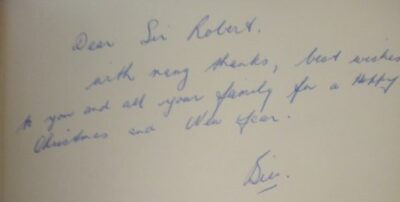 Dear Sir Robert.
with many thanks, best wishes
to you and all your family for a Happy
Christmas and New Year.